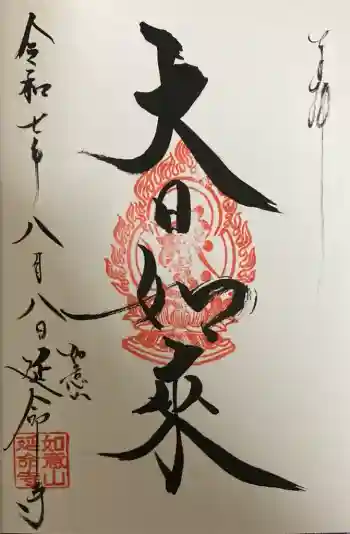 奉拝
大日如来
如意山
令和七年八月八日延命寺
如意山
延命寺